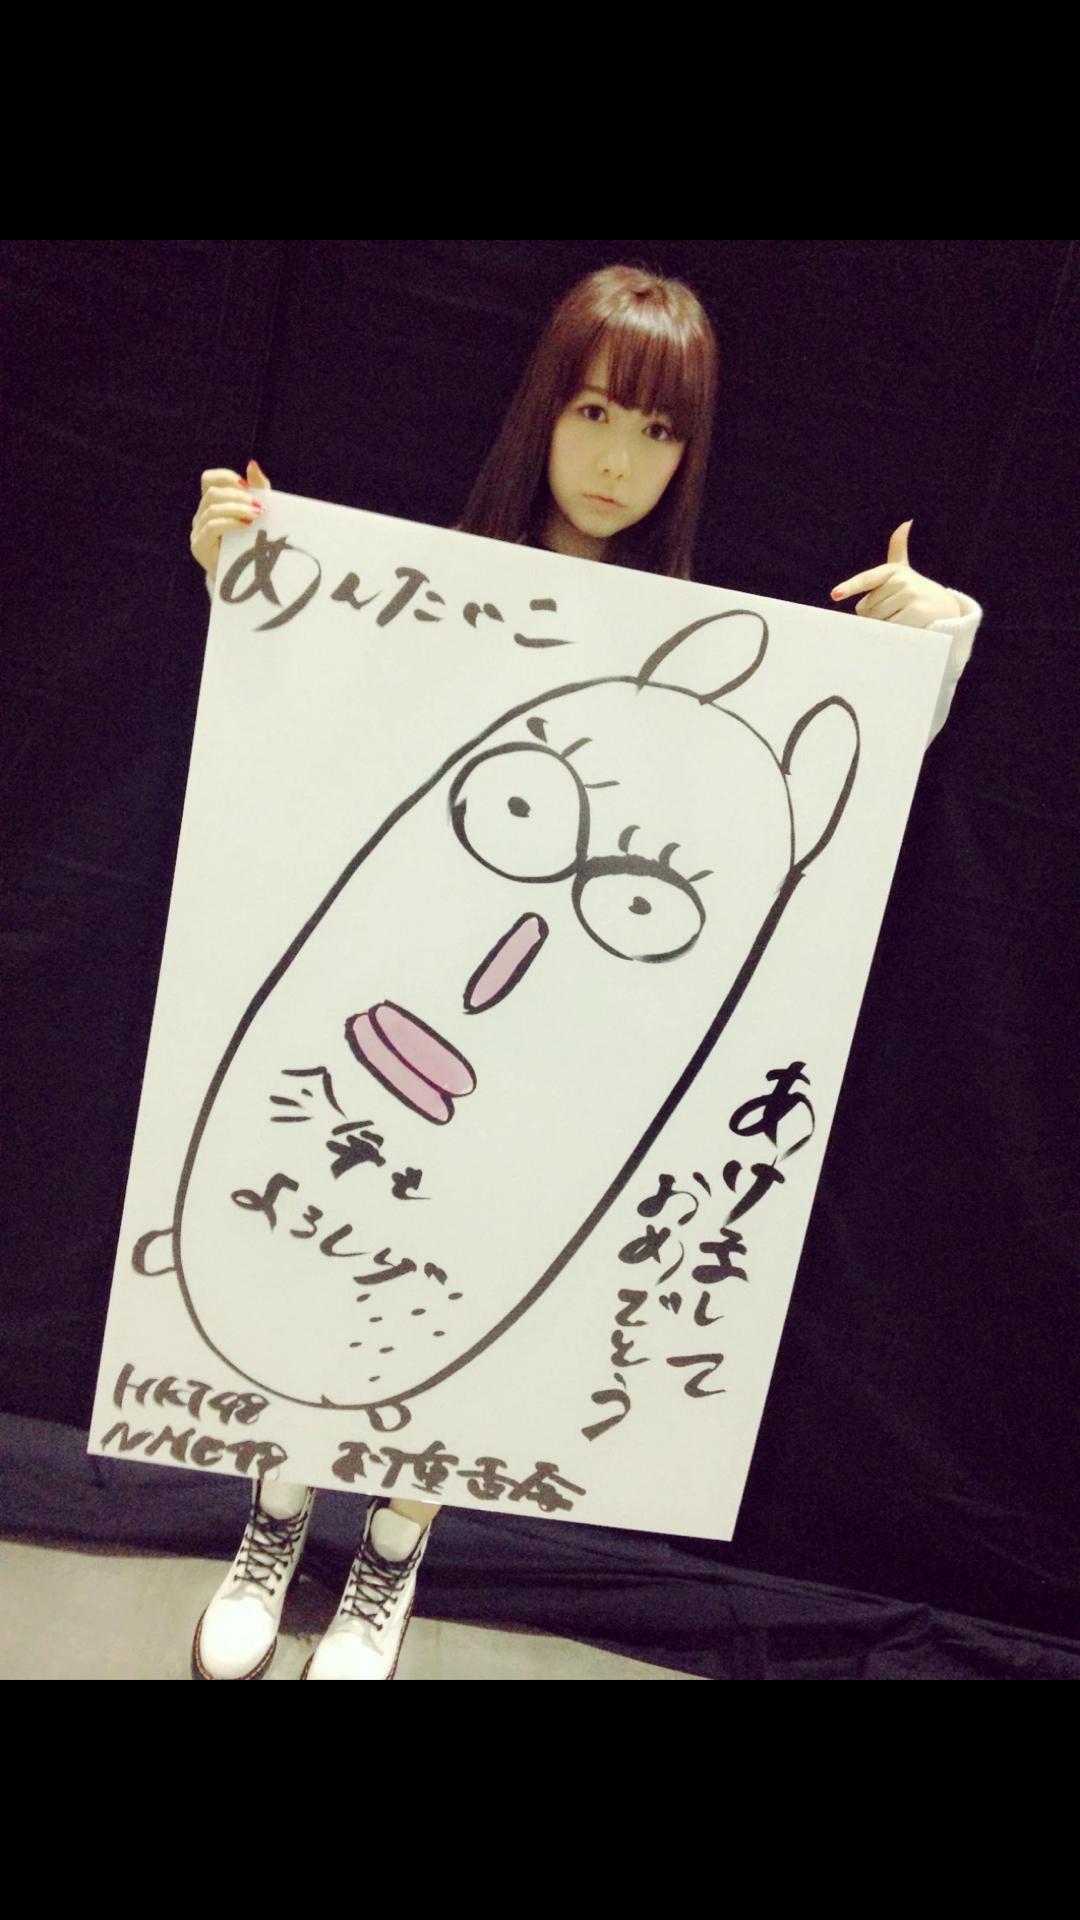 めんたいこ
今年も
よろしげ
あけまして
おめでとう
HKT48
NMB48 村重杏奈